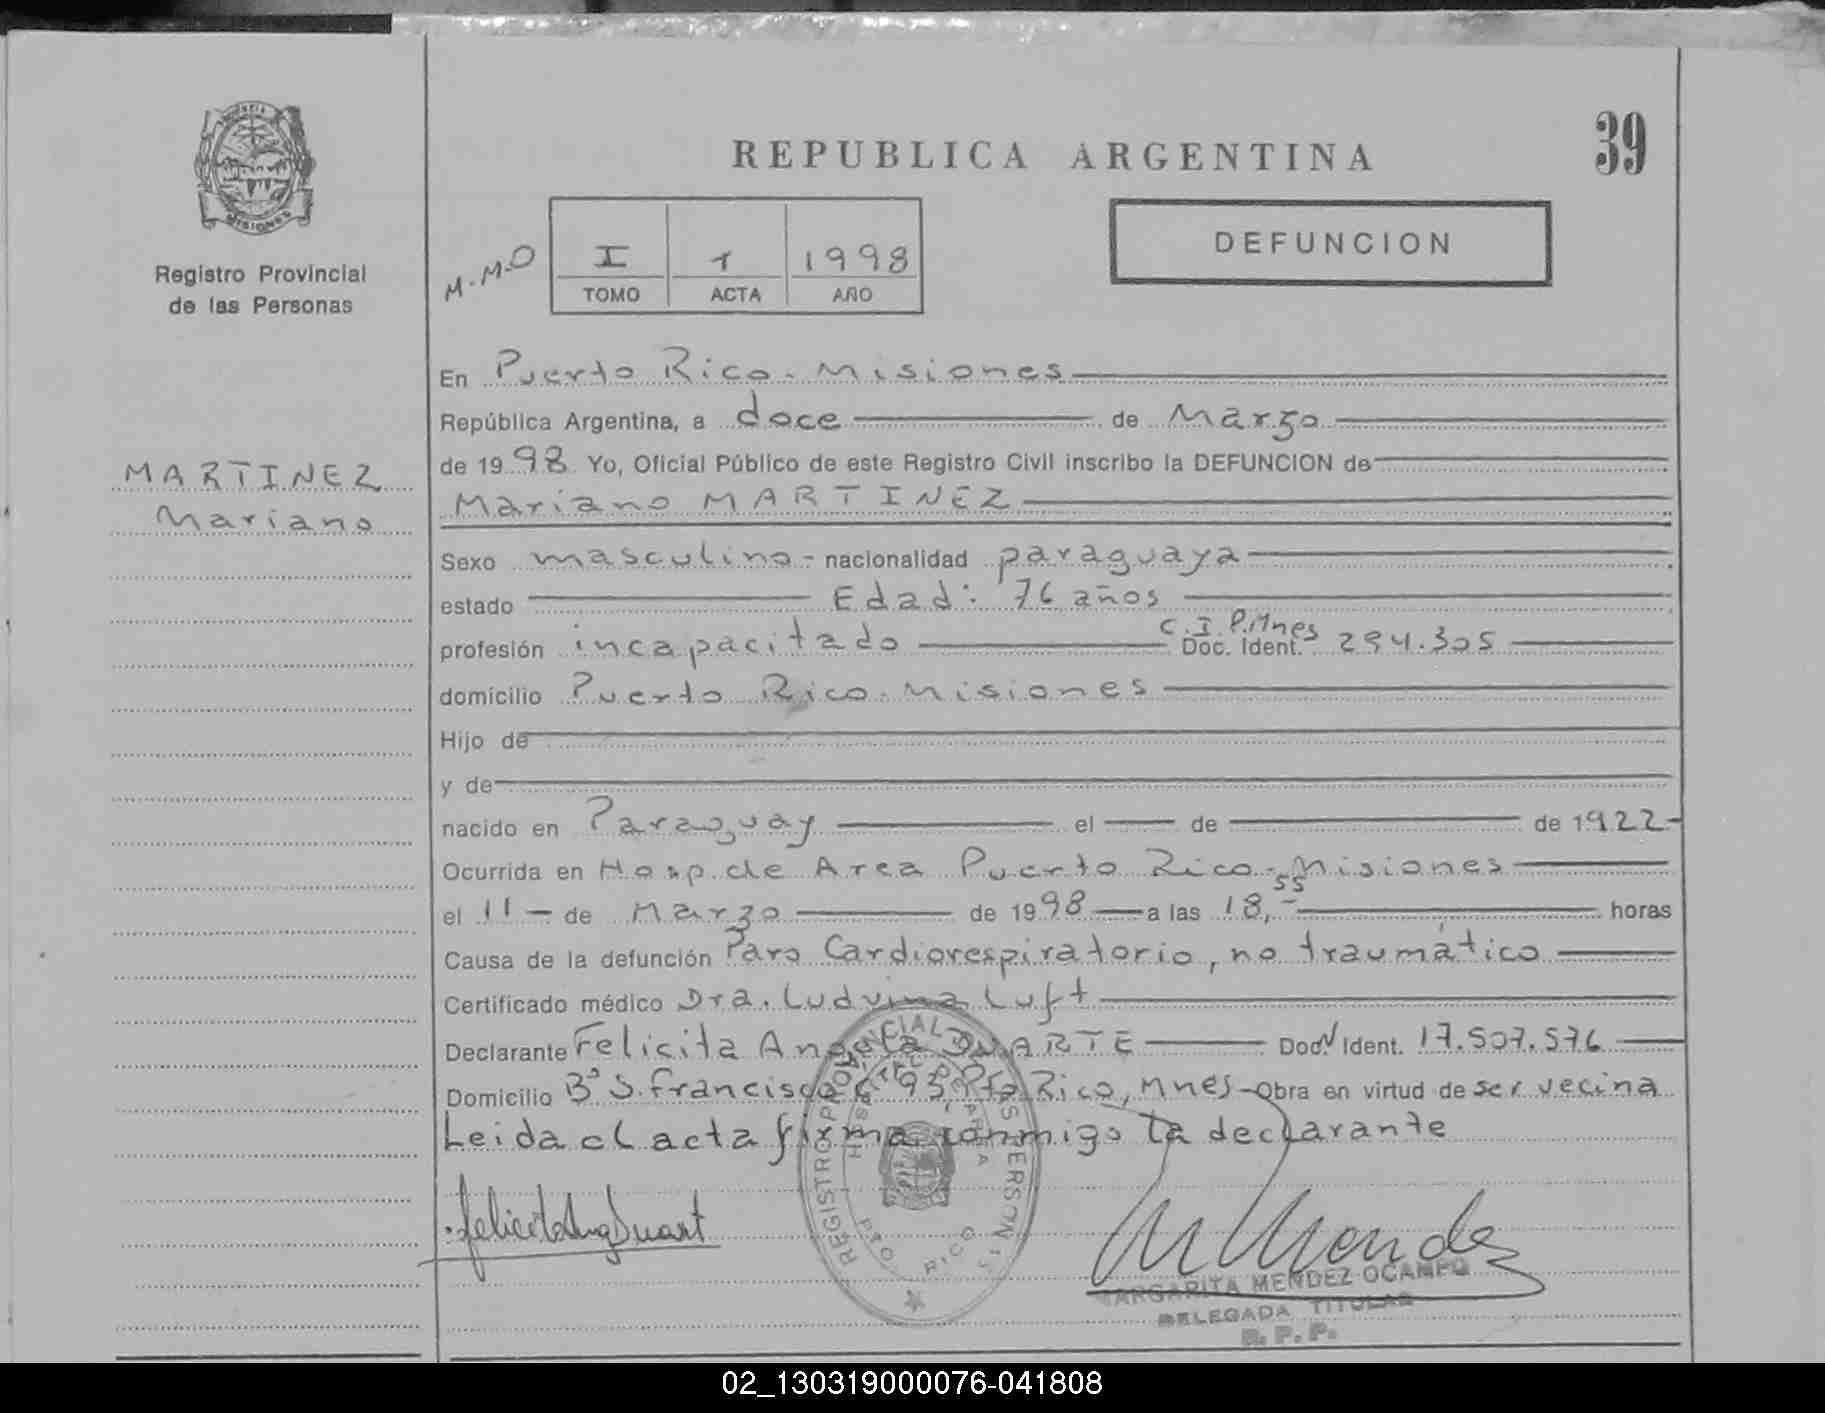 39
REPUBLICA ARGENTINA
PROVINCIA
MISIONES
Registro Provincial
de las Personas
M.M.O
I 1 1998
TOMO ACTA AÑO
DEFUNCION
En Puerto Rico - Misiones
República Argentina, a doce de Marzo
de 1998 Yo, Oficial Público de este Registro Civil inscribo la DEFUNCION de
MARTINEZ
Mariano
Mariano MARTINEZ
Sexo masculino - nacionalidad paraguaya
estado Edad: 76 años
profesión incapacitado C.I.P.Mnes Doc. Ident. 294.305
domicilio Puerto Rico - Misiones
Hijo de
y de
nacido en Paraguay el de de 1922
Ocurrida en Hosp. de Area Puerto Rico - Misiones
el 11 - de Marzo de 1998 a las 18,55 horas
Causa de la defunción Paro Cardiorespiratorio, no traumático
Certificado médico Dra. Ludvina Luft
Declarante Felicita Angela DUARTE Doc. N Ident. 17.507.576
Domicilio Bº S. Francisco C 93, Pto Rico, Mnes - Obra en virtud de ser vecina
Leida el acta firma conmigo la declarante
REGISTRO PROVINCIAL DE LAS PERSONAS
HOSPITAL DE AREA
PTO. RICO
MARGARITA MENDEZ OCAMPO
DELEGADA TITULAR
R. P. P.
02_130319000076-041808